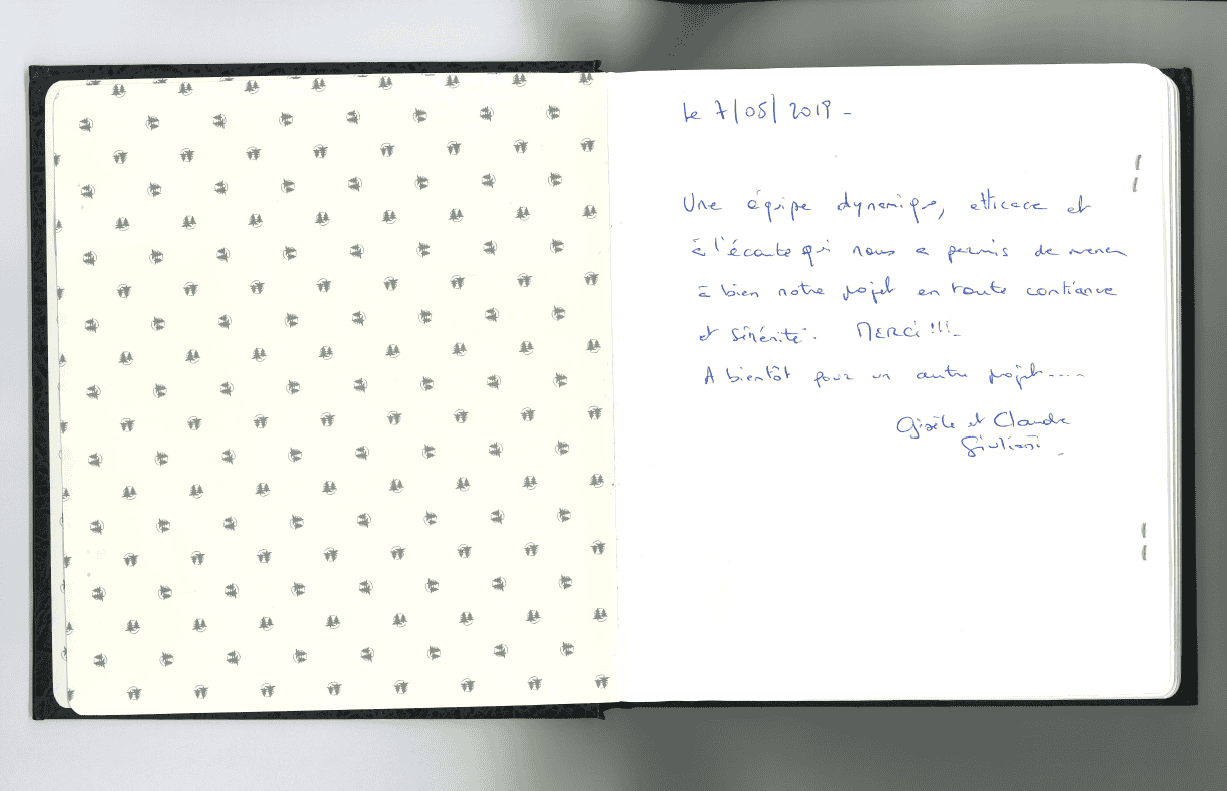 Le 7/05/2019 -
Une équipe dynamique, efficace et
à l'écoute qui nous a permis de mener
à bien notre projet en toute confiance
et sérénité. MERCi !!!-
A bientôt pour un autre projet----
Gisèle et Claude
Giuliani